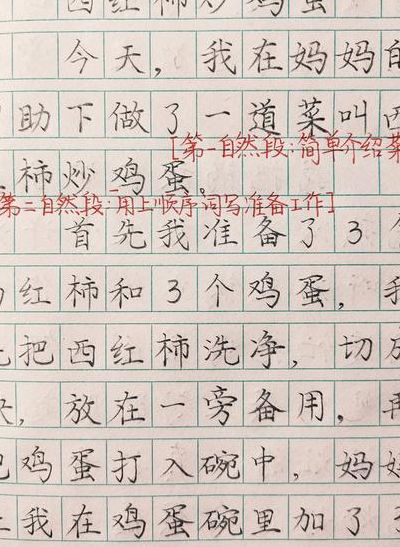 西红柿炒鸡蛋
今天，我在妈妈的
助下做了一道菜叫西
[第一自然段:简单介绍菜
柿炒鸡蛋。
第二自然段:用上顺序词写准备工作]
首先我准备了3个
红柿和3个鸡蛋，我
把西红柿洗净，切成
块，放在一旁备用，再
把鸡蛋打入碗中，妈妈
我在鸡蛋碗里加了